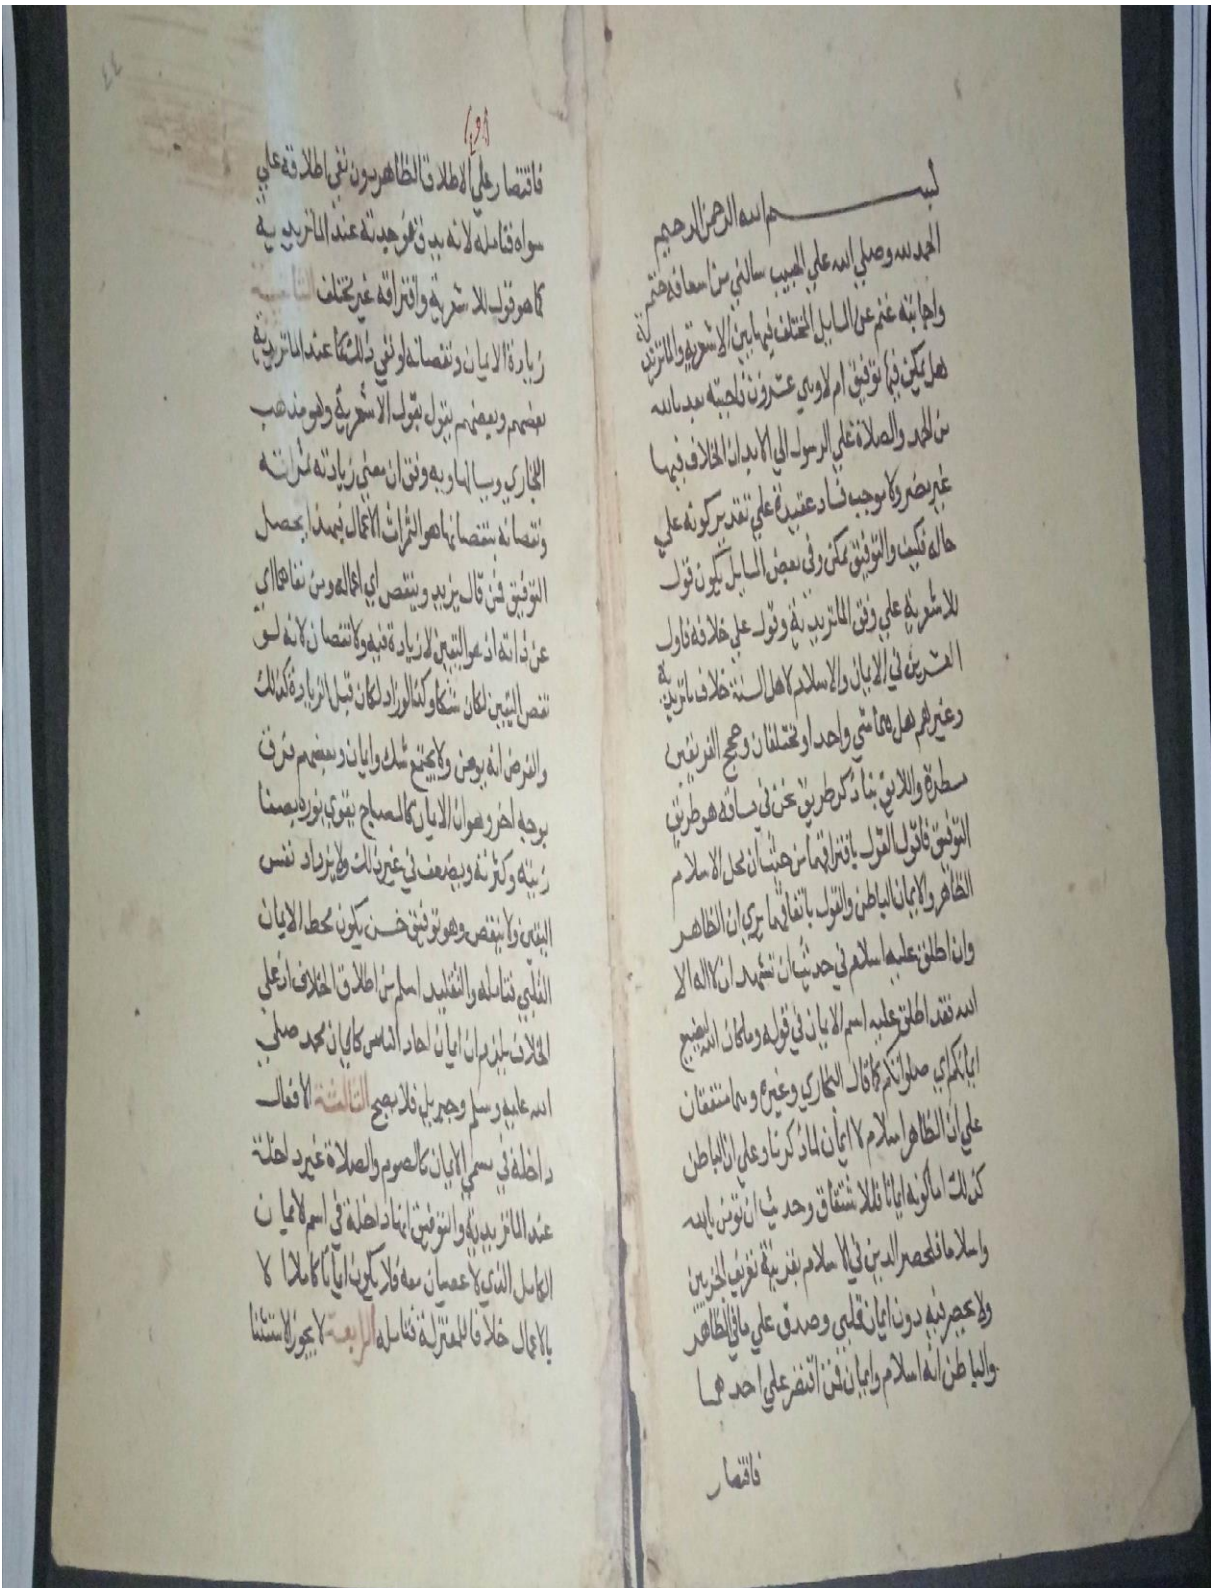 بسم الله الرحمن الرحيم
الحمد لله وصلي الله علي الحبيب سالني من اسعافه حتم
واجابته غنم عن المسايل المختلف فيها بين الاشعرية والماتريدية
هل يمكن فيها توفيق ام لا وهي عشرون فاجبته بعد بالله
من الحمد والصلاة علي الرسول الي الابد ان الخلاف فيها
غير مضر ولا موجب فساد عقيدة علي تقدير كونه علي
حاله فكيف والتوفيق ممكن وفي بعض المسايل يكون قول
للاشعرية علي وفق الماتريدية وقول علي خلافه فاول
العشرين في الايمان والاسلام لاهل السنة خلاف ماتريدية
وغيرهم هل هما شي واحد او مختلفان وحجج الفريقين
مسطرة واللايق بنا ذكر طريق نحن في مساقه هو طريق
التوفيق فاقول القول بافتراقهما من حيث ان محل الاسلام
الظاهر والايمان الباطن والقول باتفاقهما يري ان الظاهر
وان اطلق عليه اسلام في حديث ان تشهد ان لا اله الا
الله فقد اطلق عليه اسم الايمان في قوله وما كان الله ليضيع
ايمانكم اي صلواتكم كما قال البخاري وغيره وهما متفقان
علي ان الظاهر اسلام لا ايمان لما ذكرنا وعلي ان الباطن
كذلك اما كونه ايمانا فللاشتقاق وحديث ان تومن بالله
واسلاما فلحصر الدين في الاسلام بقرينة تعريف الجزيين
ولا يحصر فيه دون ايمان قلبي وصدق علي ما في الظاهر
والباطن انه اسلام وايمان فمن اقتصر علي احدهما
فاقتصار
٤٤
فاقتصار علي الاطلاق الظاهر دون نفي اطلاقه علي
سواه فتامله لانه يدق هو وحدته عند الماتريدية
كما هو قول للاشعرية وافتراقه غير مختلف الثانية
زيادة الايمان ونقصانه او نفي ذلك كما عند الماتريدية
بعضهم وبعضهم يقول بقول الاشعرية وهو مذهب
البخاري وبيانها وبه وفق ان معني زيادته ثمراته
ونقصانه بنقصانها هو الثمرات الاعمال فبهذا يحصل
التوفيق فمن قال يزيد وينقص اي اعماله ومن نفاهما اي
عن ذاته اذ هو اليقين لا زيادة فيه ولا نقصان لانه لو
نقص اليقين لكان شكا وكذا لو زاد لكان قبل الزيادة كذلك
والفرض انه يومن ولا يجتمع شك وايمان وبعضهم فرق
بوجه اخر وهو ان الايمان كالمصباح يقوي نوره بصفا
زيته وكثرته ويضعف في غير ذلك ولا يزداد نفس
اليقين ولا ينقص وهو توفيق حسن يكون محط الايمان
القلبي فتامله والتقليد اسلم من اطلاق الخلاف اذ علي
الخلاف يلزم ان ايمان احاد الناس كايمان محمد صلي
الله عليه وسلم وجبريل فلا يصح الثالثة الافعال
داخلة في مسمي الايمان كالصوم والصلاة غير داخلة
عند الماتريدية والتوفيق انها داخلة في اسم لايمان
الكامل الذي لا عصيان معه فلا يكون ايمانا كاملا الا
بالاعمال خلافا للمعتزلة فتامله الرابعة لا يجوز الاستثنا